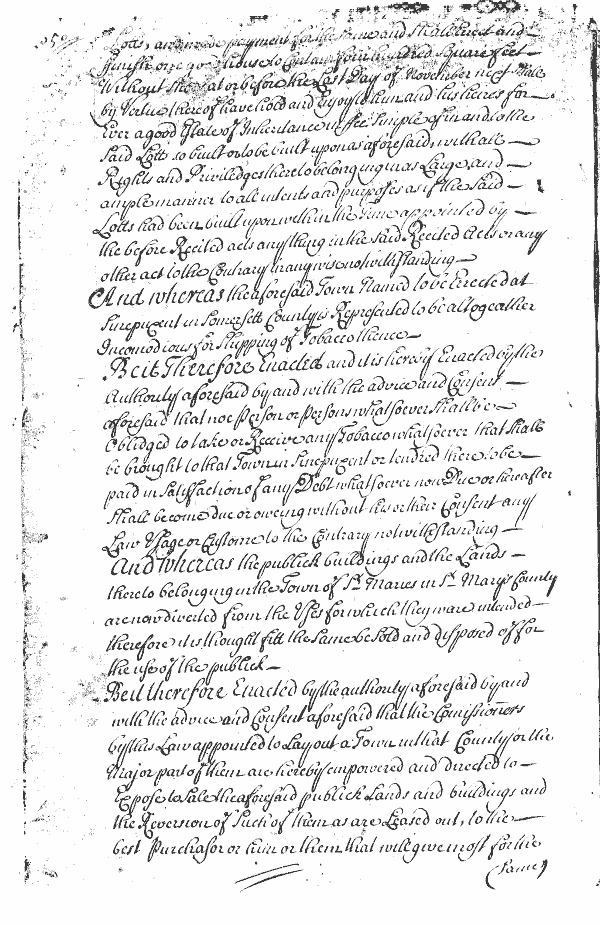 Lotts, and made payment for the same and shall Erect and
finish one good house to Contain four hundred square feet
Without the
at or before the Last Day of November next shall
by Vertue thereof have hold and Enjoy to him and his heires for
Ever a good Estate of Inheritance in ffee Simple of in and to the
said Lotts so built or to be built upon as aforesaid, with all
Rights and Priviledges thereto belonging in as Large and
ample manner to all intents and purposes as if the said
Lotts had been built upon within the time appointed by
the before Recited acts any thing in the said Recited Acts or any
other act to the Contrary in any wise notwithstanding
And whereas the aforesaid Town Named to be Erected at
Sinepuxent in Somersett County is Represented to be altogeather
Incomodious for Shipping of Tobacco thence
Be it Therefore Enacted and it is hereby Enacted by the
Authority aforesaid by and with the advice and Consent
aforesaid that noe Person or Persons whatsoever shall be
Obliedged to take or Receive any Tobacco whatsoever that shall
be brought to that Town in Sinepuxent or tendred there to be
paid in Satisfaction of any Debt whatsoever now Due or hereafter
shall become due or oweing without his or their Consent any
Law Usage or Custome to the Contrary notwithstanding
And whereas the publick buildings and the Lands
thereto belonging in the Town of St. Maries in St. Mary's County
are now diverted from the Uses for which they ware intended
therefore it is thought fitt the Same be Sold and disposed of for
the use of the publick
Be it therefore Enacted by the authority aforesaid by and
with the advice and Consent aforesaid that the Comissioners
by this Law appointed to Lay out a Town in that County or the
Major part of them are hereby empowered and directed to
Expose to Sale the aforesaid publick Lands and buildings and
the Reversion of Such of them as are Leased out, to the
best Purchasor or him or them that will give most for the
(Same)